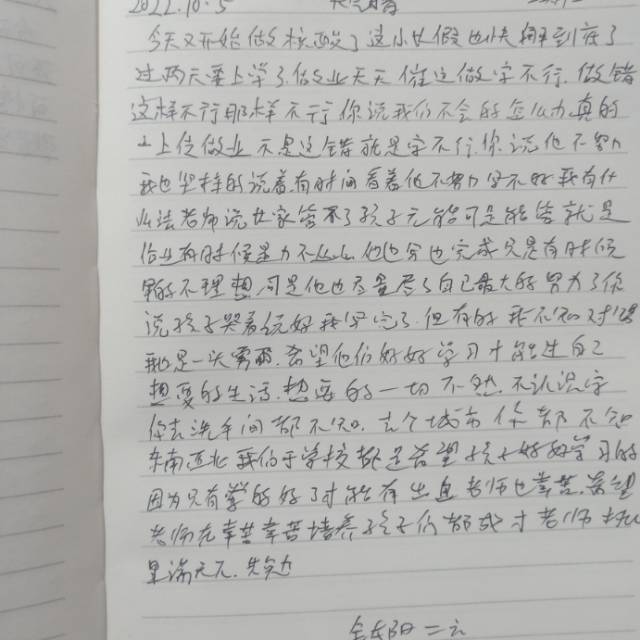 2022.10.5
今天又开始做核酸了这小长假也快
过两天要上学了做业天天催这做字不行.做错
这样不行那样不行你说我们不会的怎么办真的
上做业不是这错就是字不行.你说他不努力
我也坚持的说看有时间看着他不努力字不好我有什
么法老师说 家管不了孩子 可是能管就是
作业有时候 他也 也完成只是有时候
的不理想.可是他也尽量尽了自己最大的努力了你
说孩子哭着 好我写完了.但有的我不知对错
我是一 希望他们好好学习才能过自己
想要的生活.想要的一切不然.不认识字
你去洗手间都不知.去个城市你都不知
东南西北我们于学校都是希望孩子好好学习的
因为只有学的好了才能有出息老师也辛苦.希望
老师在辛苦辛苦培养孩子们都成才老师桃
里满天下.
二